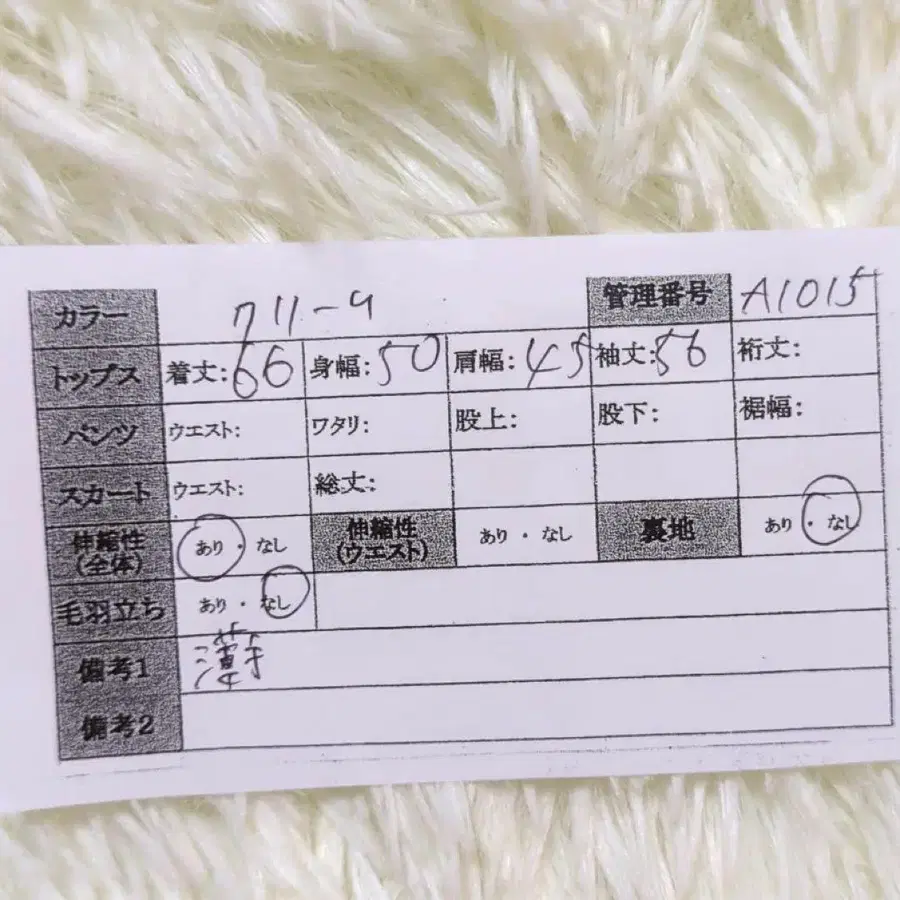 カラー クリーム 管理番号 A1015
トップス 着丈:66 身幅:50 肩幅:45 袖丈:56 裄丈:
パンツ ウエスト: ワタリ: 股上: 股下: 裾幅:
スカート ウエスト: 総丈:
伸縮性(全体) あり・なし 伸縮性(ウエスト) あり・なし 裏地 あり・なし
毛羽立ち あり・なし
備考1 薄手
備考2